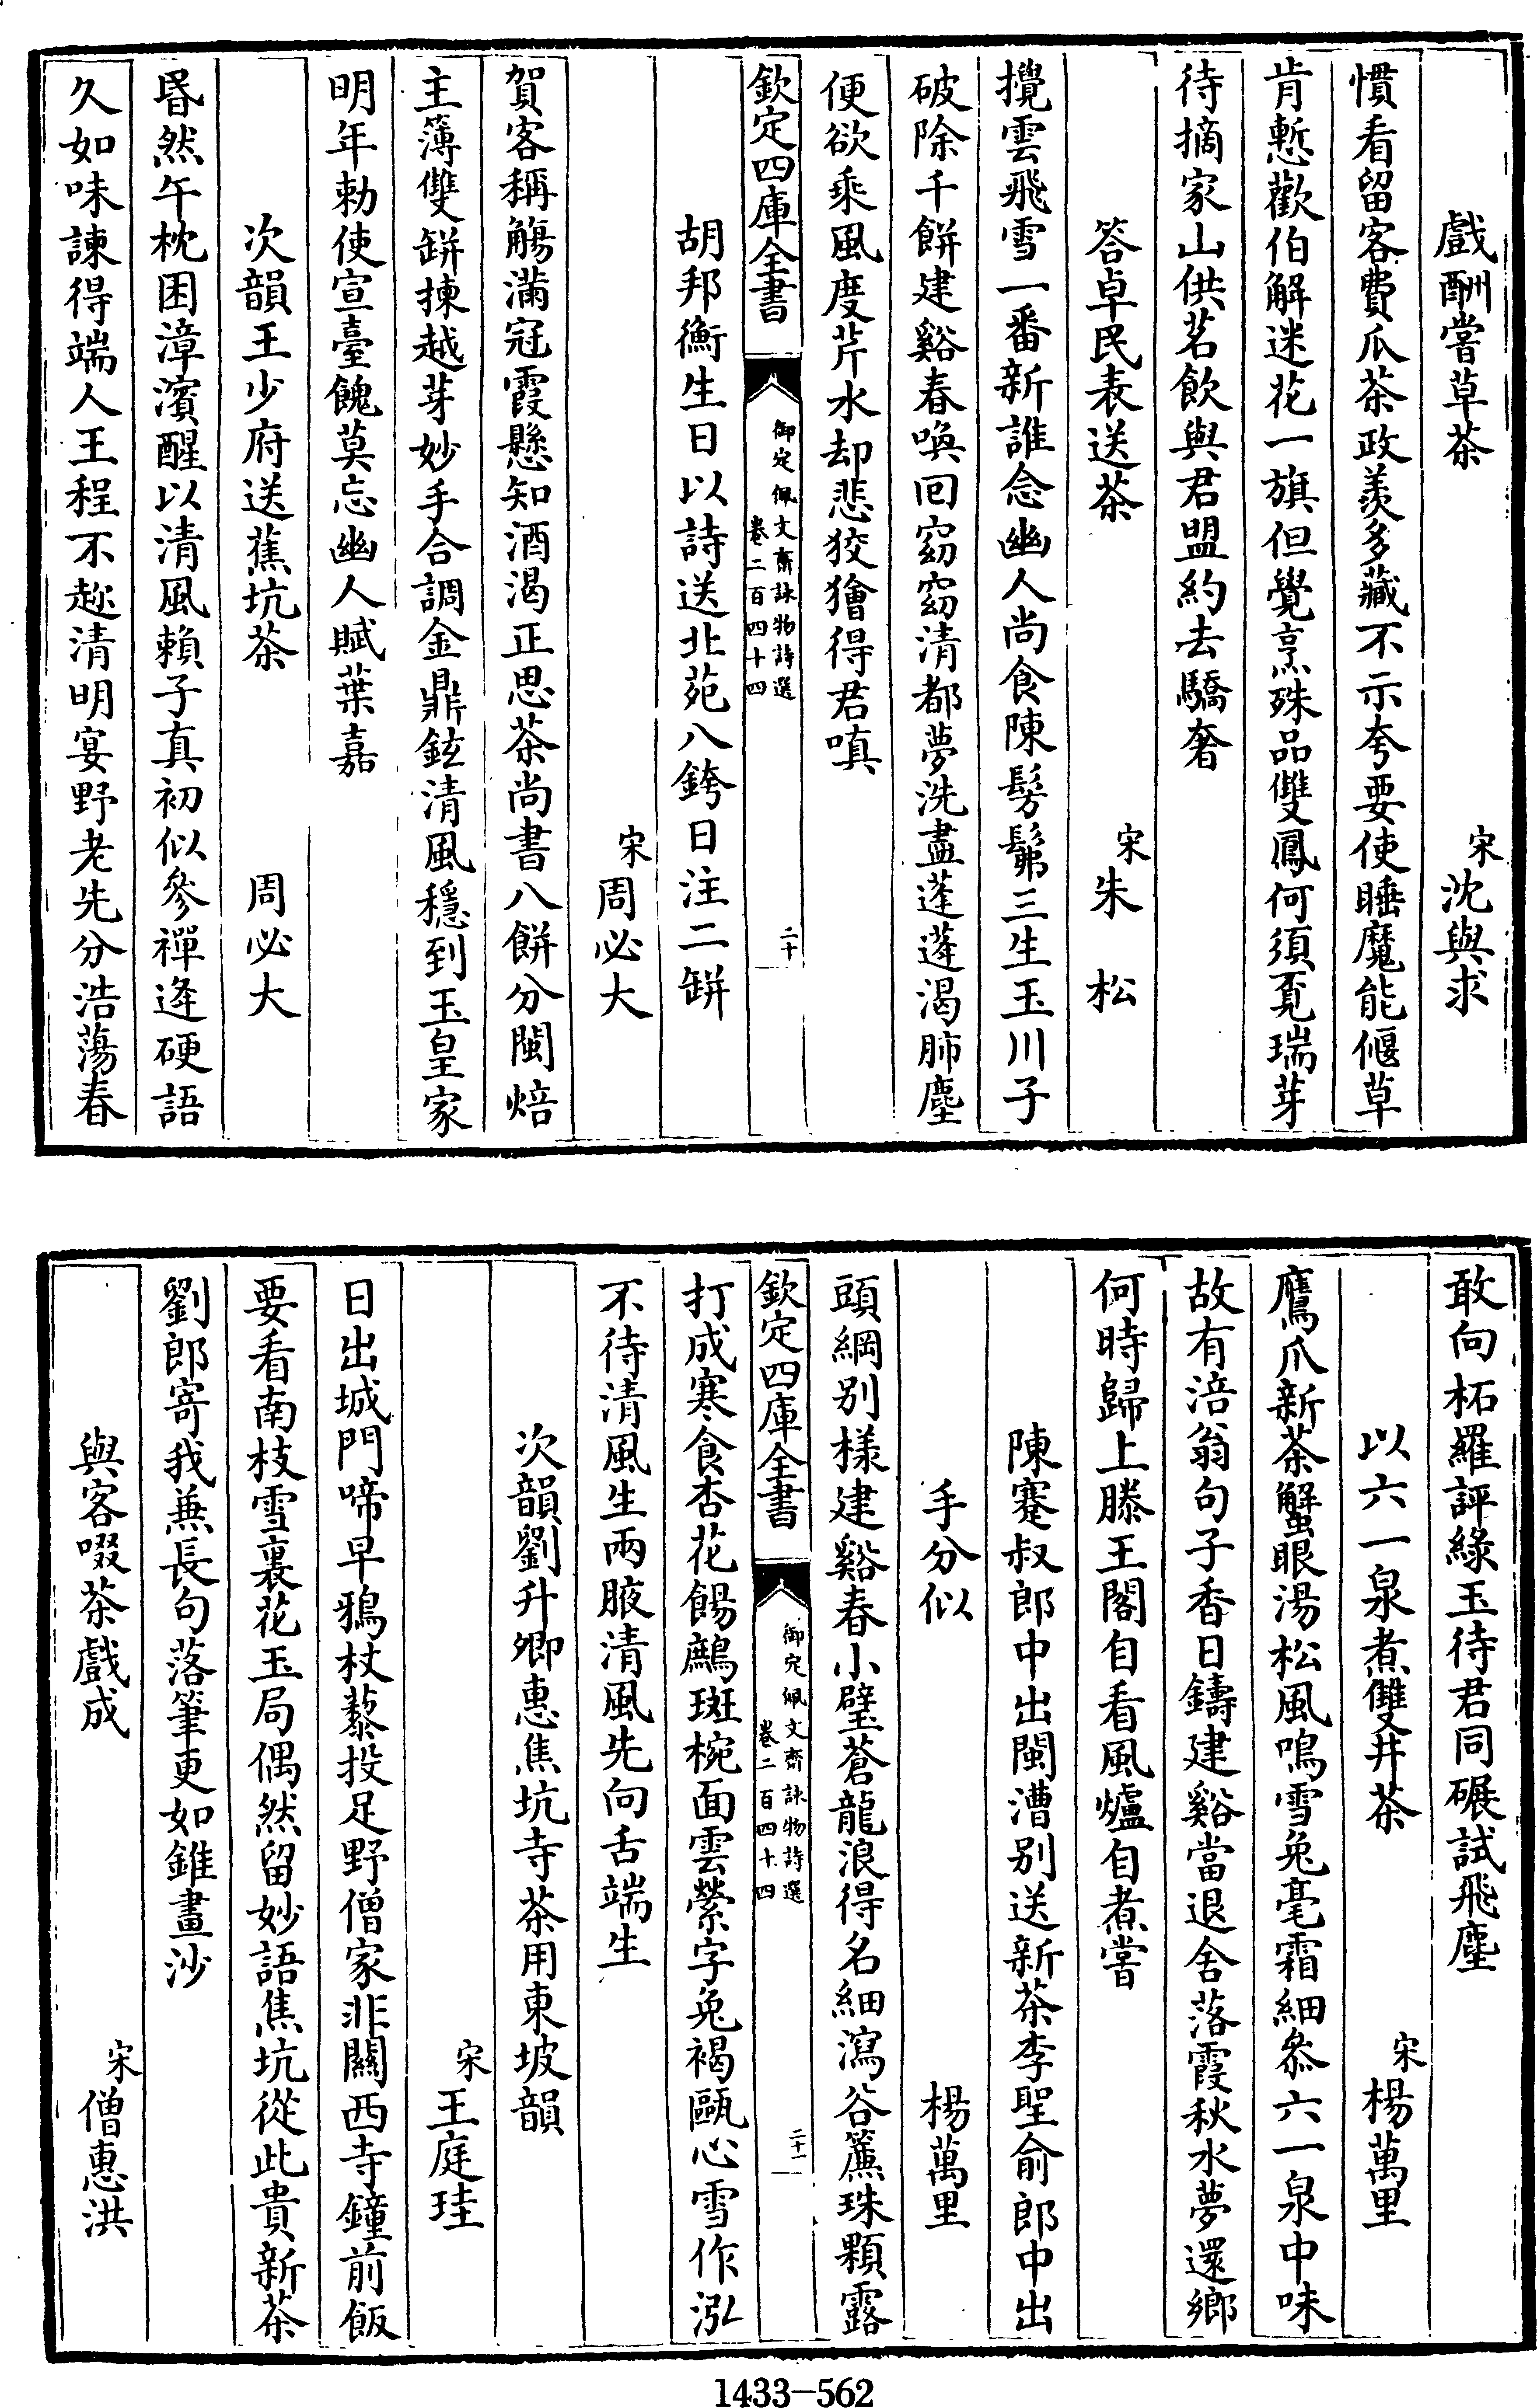 戲酬嘗草茶
宋沈與求
慣看留客費瓜茶政羨多藏不示夸要使睡魔能偃草
肯慙歡伯解迷花一旗但覺烹殊品雙鳳何須覔瑞芽
待摘家山供茗飲與君盟約去驕奢
答卓民表送茶
宋朱松
攪雲飛雪一番新誰念幽人尚食陳髣髴三生玉川子
破除千餅建谿春喚回窈窈清都夢洗盡蓬蓬渴肺塵
便欲乘風度芹水却悲狡獪得君嗔
欽定四庫全書
御定佩文齋詠物詩選
卷二百四十四
二十
胡邦衡生日以詩送北苑八銙日注二缾
宋周必大
賀客稱觴滿冠霞懸知酒渴正思茶尚書八餅分閩焙
主簿雙缾揀越芽妙手合調金鼎鉉清風穩到玉皇家
明年勅使宣臺餽莫忘幽人賦葉嘉
次韻王少府送蕉坑茶
周必大
昏然午枕困漳濱醒以清風賴子真初似參禪逢硬語
久如味諫得端人王程不趁清明宴野老先分浩蕩春
敢向柘羅評綠玉待君同碾試飛塵
以六一泉煮雙井茶
宋楊萬里
鷹爪新茶蟹眼湯松風鳴雪兔毫霜細叅六一泉中味
故有涪翁句子香日鑄建谿當退舍落霞秋水夢還鄉
何時歸上滕王閣自看風爐自煮嘗
陳蹇叔郎中出閩漕别送新茶李聖俞郎中出
手分似
楊萬里
頭綱别樣建谿春小璧蒼龍浪得名細瀉谷簾珠顆露
打成寒食杏花餳鷓斑椀面雲縈字兔褐甌心雪作泓
不待清風生兩腋清風先向舌端生
欽定四庫全書
御定佩文齋詠物詩選
卷二百四十四
二十一
次韻劉升卿惠焦坑寺茶用東坡韻
宋王庭珪
日出城門啼早鴉杖藜投足野僧家非關西寺鐘前飯
要看南枝雪裏花玉局偶然留妙語焦坑從此貴新茶
劉郎寄我兼長句落筆更如錐畫沙
與客啜茶戲成
宋僧惠洪
1433-562